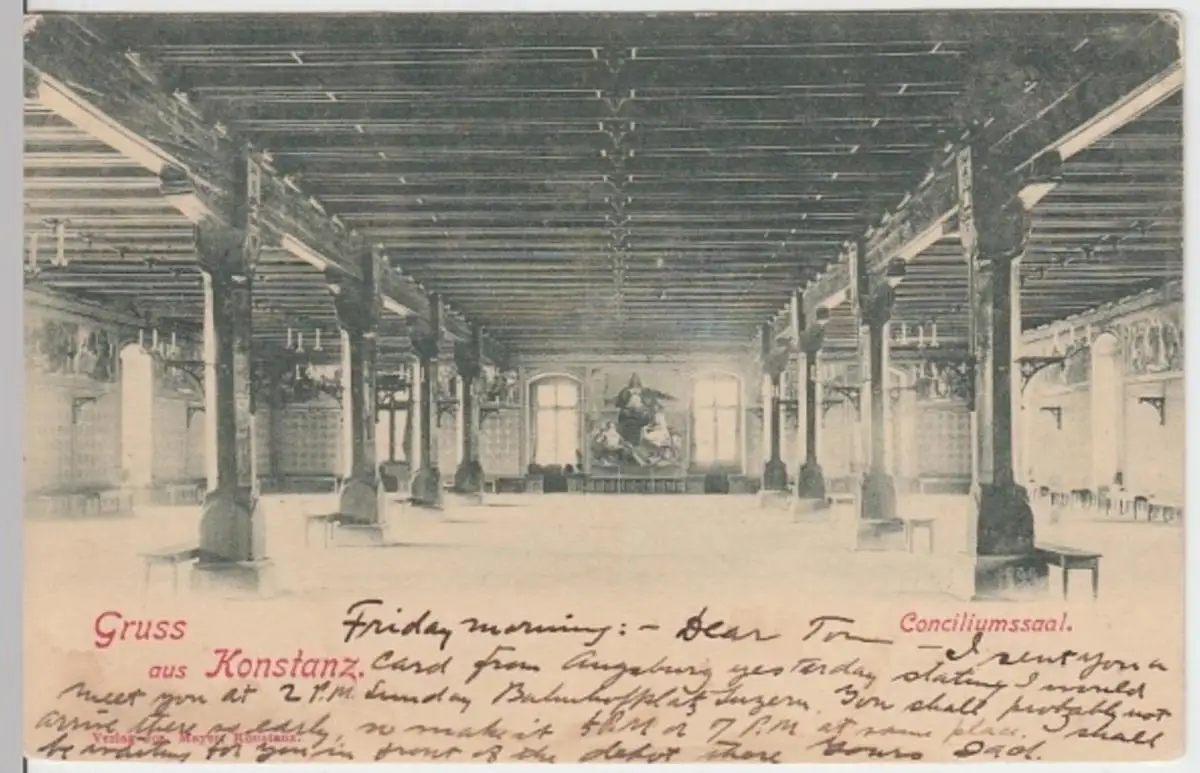 Gruss
aus Konstanz.
Conciliumssaal.
Friday morning:- Dear Tom - I sent you a
card from Augsburg yesterday stating I would
meet you at 2 P.M Sunday Bahnhofplatz Luzern. You shall probably not
arrive there so early, so make it 5 P.M or 7 P.M at same place. I shall
be waiting for you in front of the depot there Yours Dad.
Verlag Jos. Mayer, Konstanz.